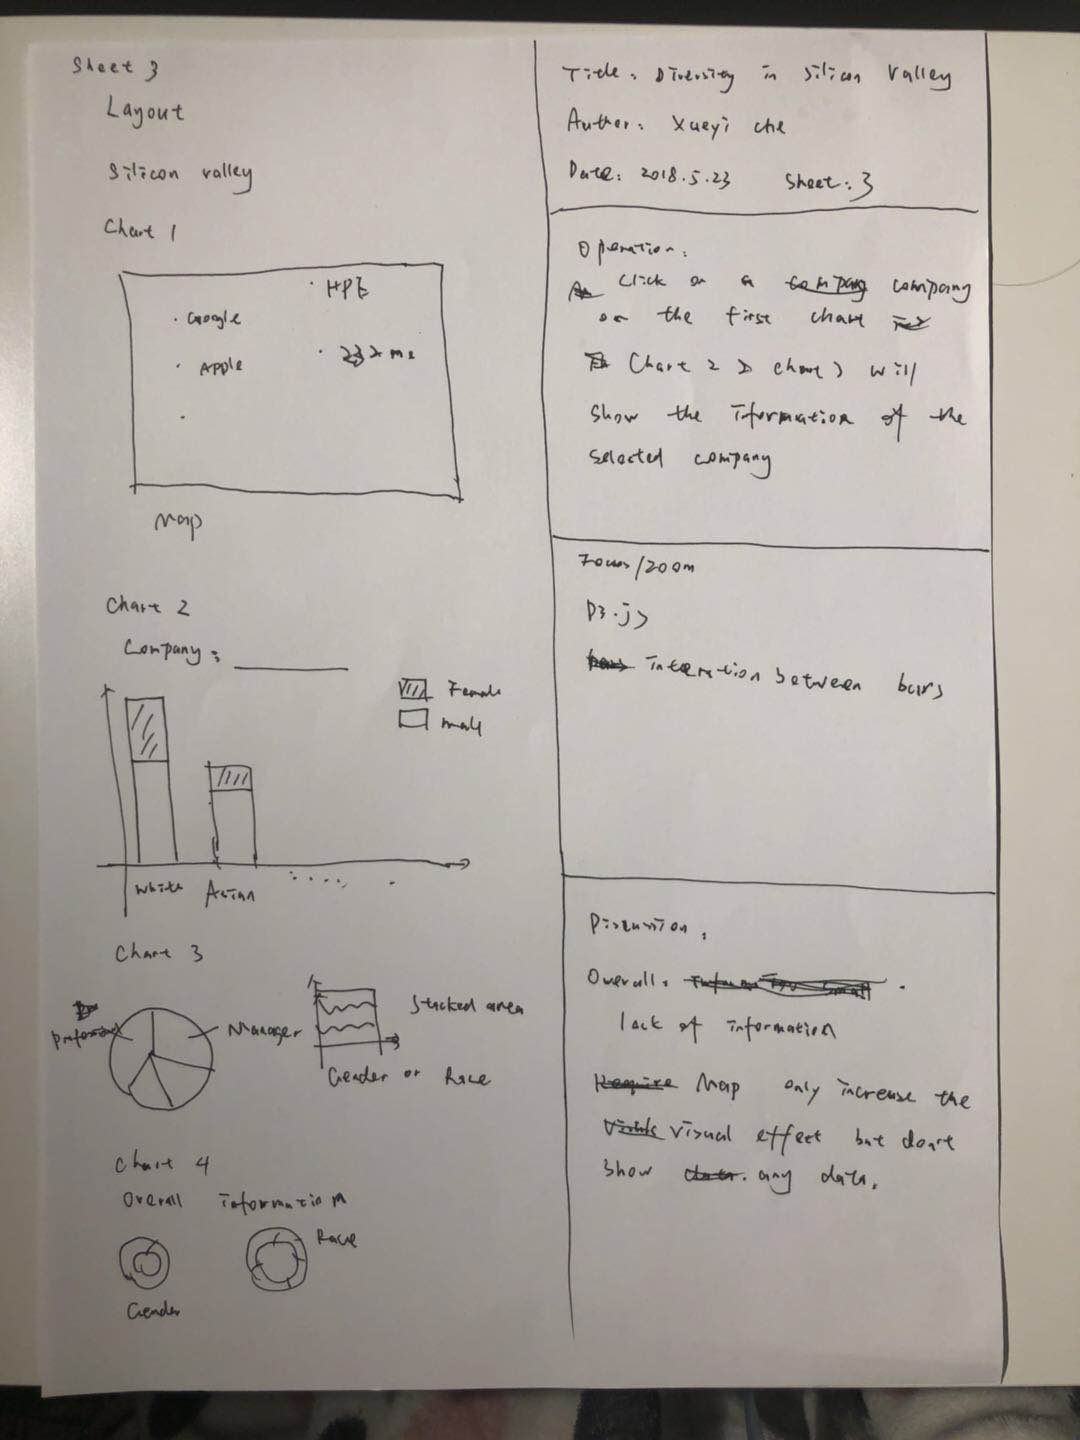 Sheet 3
Layout
Silicon valley
Chart 1
HPE
Google
Apple
23 & me
Map
Chart 2
Company:
Female
male
White Asian
Chart 3
Manager
Stacked area
Gender or Race
Chart 4
Overall information
Race
Gender
Title: Diversity in Silicon Valley
Author: Xueyi che
Date: 2018.5.23 Sheet: 3
Operation:
Click on a company
on the first chart
Chart 2 chart 3 will
show the information of the
selected company
Focus/zoom
D3.js
between bars
Discussion:
Overall:
lack of information
Map only increase the
visual effect but don't
show any data.